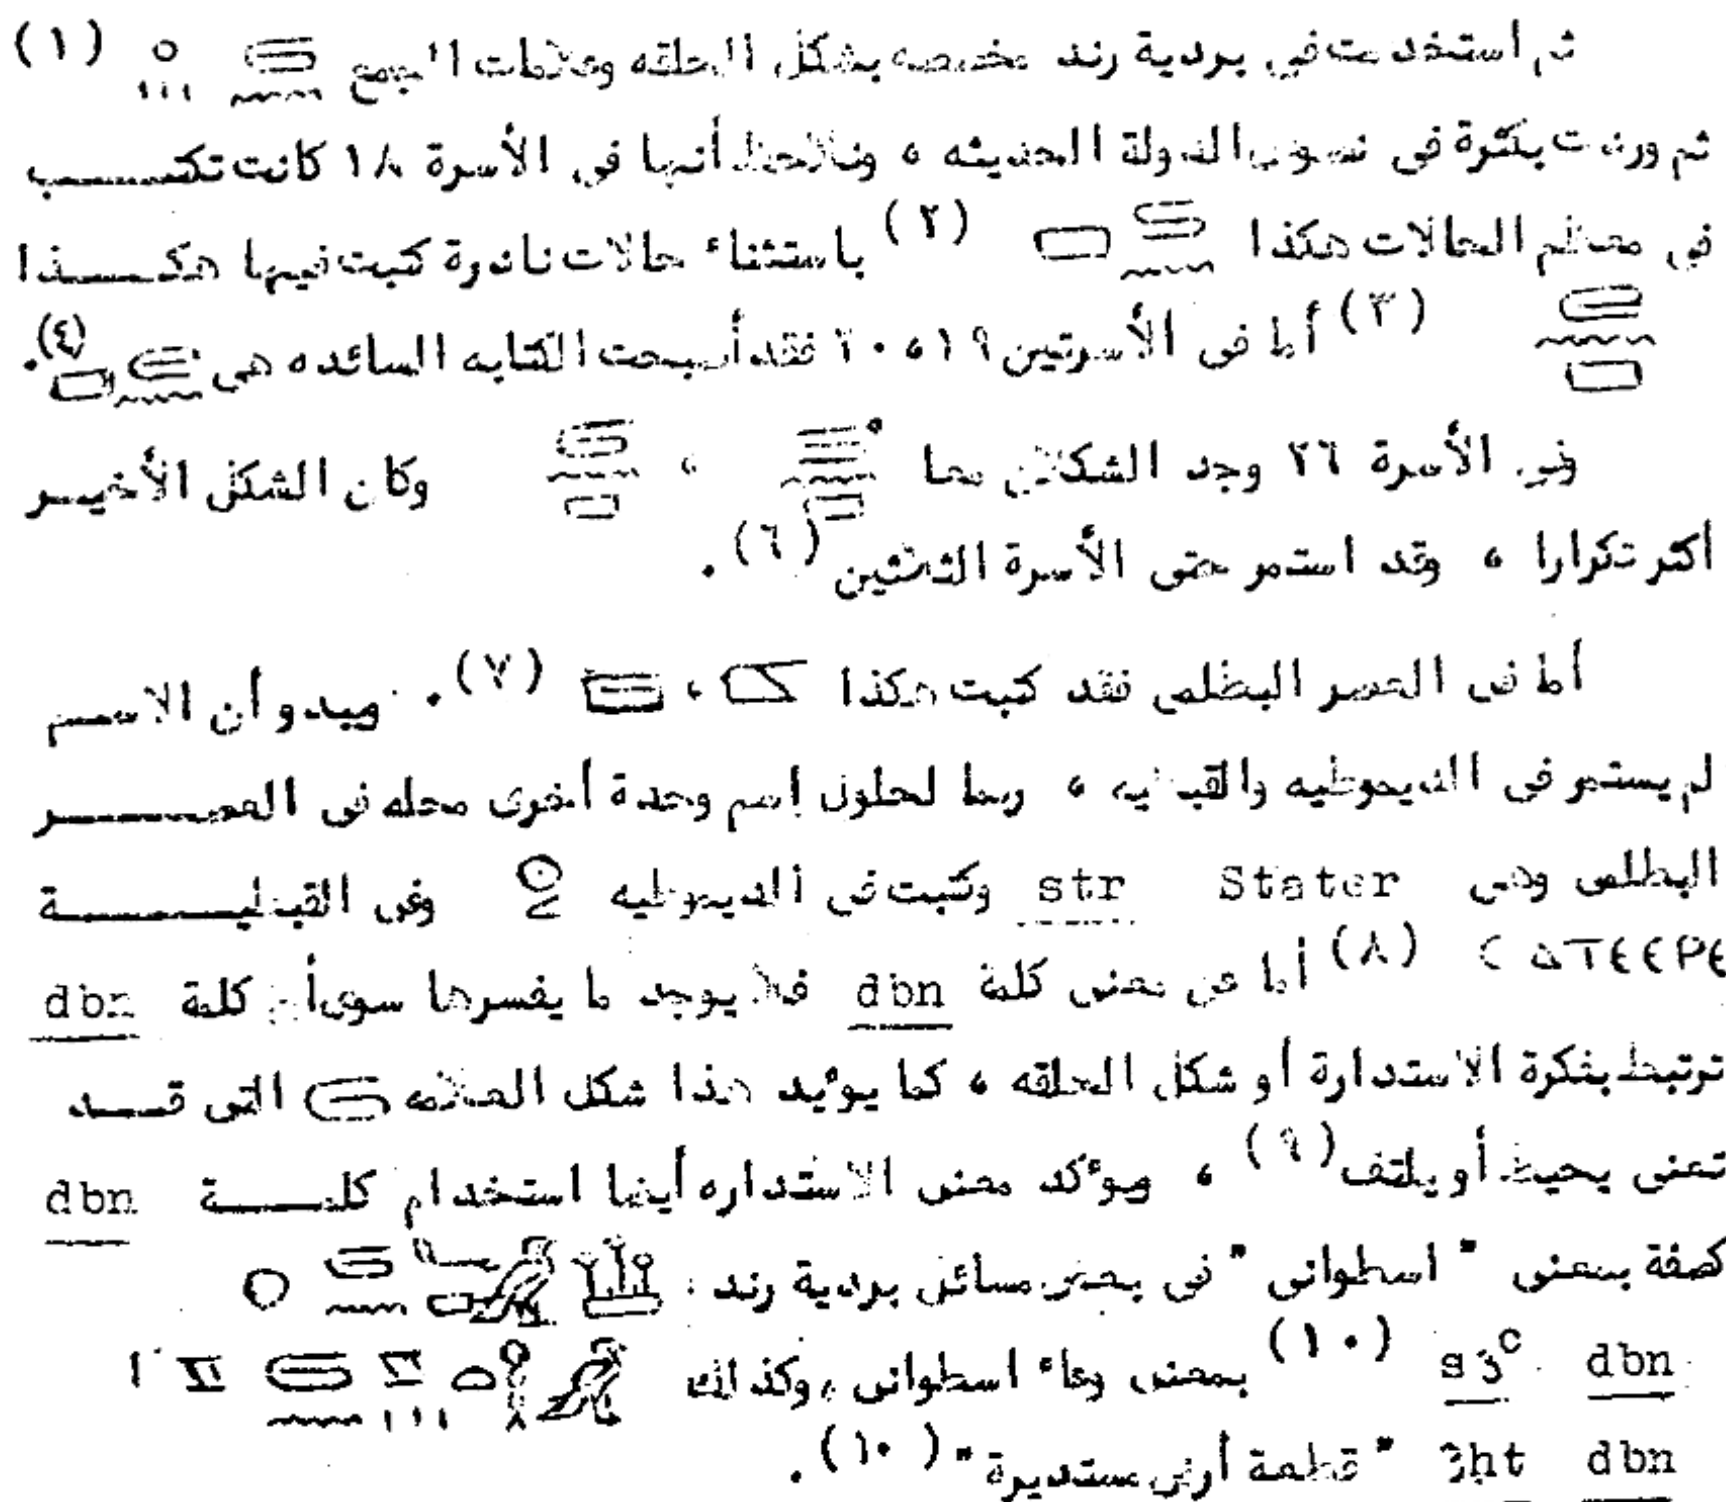 ثم استخدمت في بردية رند مخصصه بشكل الحلقه وعلامات الجمع (١)
ثم وردت بكثرة في نصوص الدولة الحديثه ، ونلاحظ أنها في الأسرة ١٨ كانت تكتب
في معظم الحالات هكذا (٢) باستثناء حالات نادرة كتبت فيها هكذا
(٣) أما في الأسرتين ١٩ ، ٢٠ فقد أصبحت الكتابه السائده هي (٤).
وفي الأسرة ٢٦ وجد الشكلان معا ، وكان الشكل الأخير
أكثر تكرارا ، وقد استمر حتى الأسرة الثلاثين (٦).
أما في العصر البطلمي فقد كتبت هكذا ، (٧). ويبدو أن الاسم
لم يستمر في الديموطيه والقبطيه ، ربما لحلول إسم وحدة أخرى محله في العصر
البطلمي وهي Stater str وكتبت في الديموطيه وفي القبطية
ϹΑΤΕΕΡΕ (٨) أما عن معنى كلمة dbn فلا يوجد ما يفسرها سوى أن كلمة dbn
ترتبط بفكرة الاستدارة أو شكل الحلقه ، كما يؤيد هذا شكل العلامه التى قد
تعنى يحيط أو يلتف (٩) ، ويؤكد معنى الاستداره أيضا استخدام كلمة dbn
كصفة بمعنى " اسطوانى " فى بعض مسائل بردية رند :
dbn s3ᶜ (١٠) بمعنى وعاء اسطوانى ، وكذلك
dbn 3ht " قطعة أرض مستديرة " (١٠).